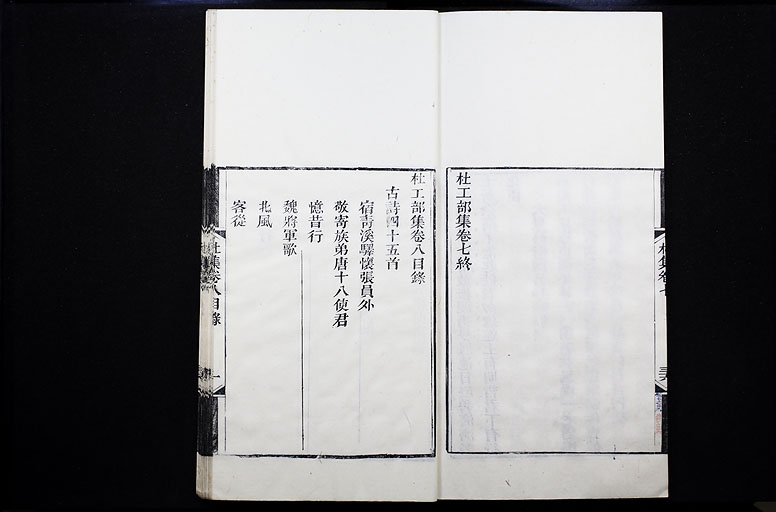 杜工部集卷七終
杜工部集卷八目錄
古詩四十五首
宿青溪驛懷張員外
敬寄族弟唐十八使君
憶昔行
魏將軍歌
北風
客從
杜集卷八目錄
一